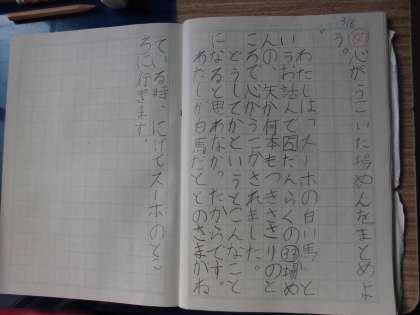 3/8
心がうごいた場めんをまとめよ
う。
わたしは「スーホの白い馬」と
いうお話んで だんらくの 場め
んの、矢が何本もつきささりのと
ころで心がうごかされました。
どうしてかというとこんなこと
になると思わなかったからです。
わたしが白馬だととのさまがね
ている時、にげてスーホのとこ
ろに行きます。